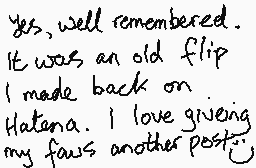 Yes, well remembered.
It was an old flip
I made back on
Hatena. I love giveing
my favs another post